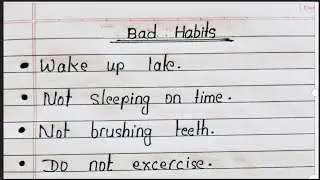 Bad Habits
• Wake up late.
• Not sleeping on time.
• Not brushing teeth.
• Do not excercise.